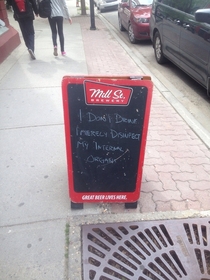 Mill St.
BREWERY
I DON'T DRINK
I MERELY DISINFECT
MY INTERNAL
ORGANS
GREAT BEER LIVES HERE.